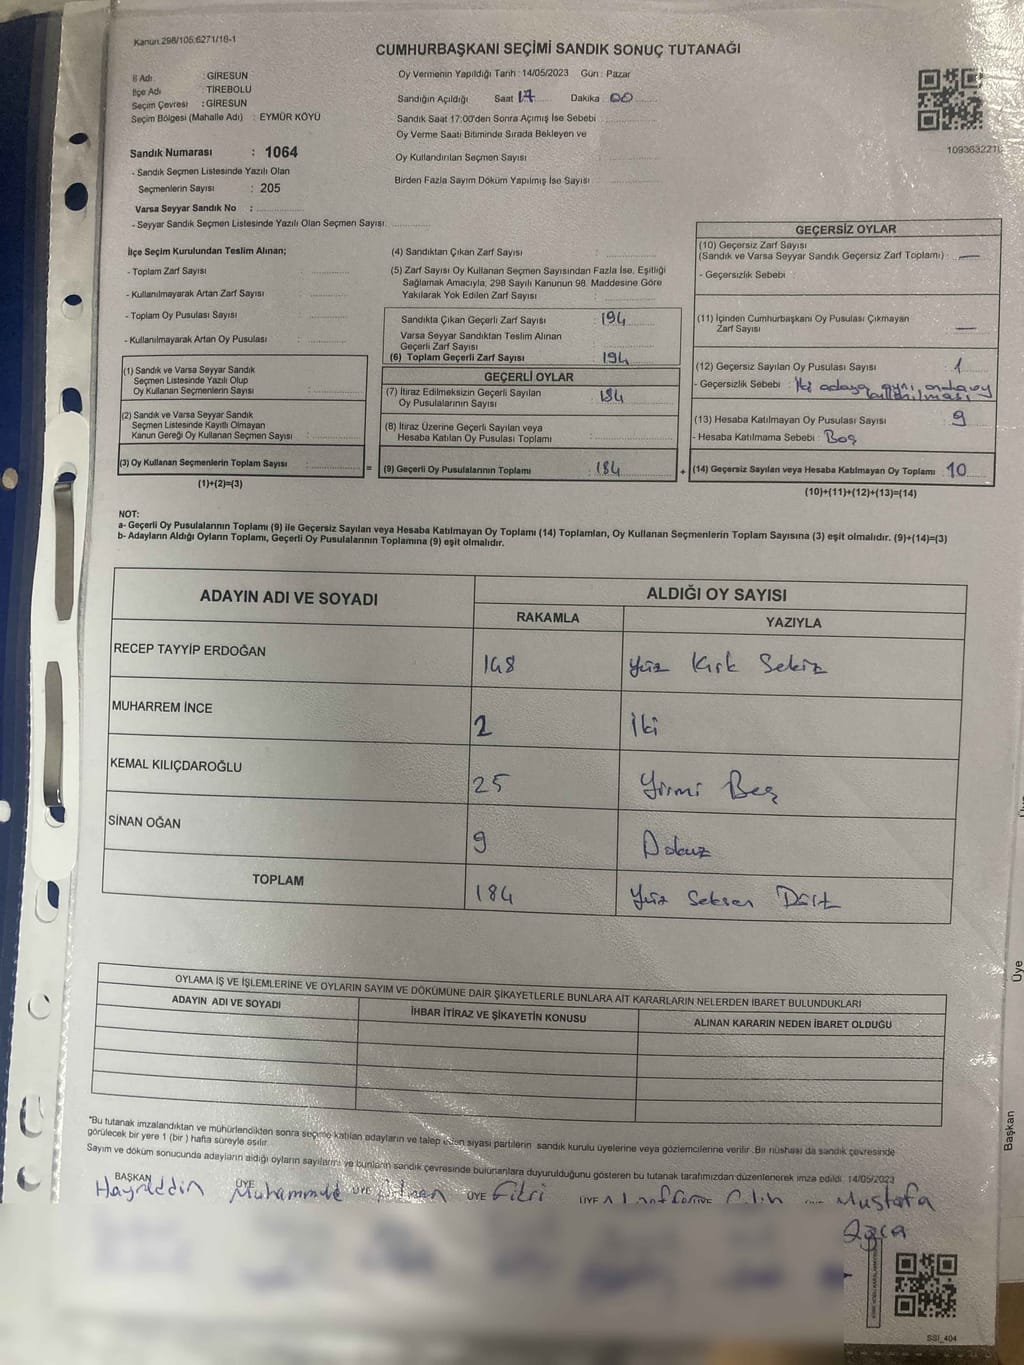 Kanun:298/105;6271/18-1
CUMHURBAŞKANI SEÇİMİ SANDIK SONUÇ TUTANAĞI
İl Adı : GİRESUN
İlçe Adı : TİREBOLU
Seçim Çevresi : GİRESUN
Seçim Bölgesi (Mahalle Adı) : EYMÜR KÖYÜ
Sandık Numarası : 1064
- Sandık Seçmen Listesinde Yazılı Olan
Seçmenlerin Sayısı : 205
Varsa Seyyar Sandık No :
- Seyyar Sandık Seçmen Listesinde Yazılı Olan Seçmen Sayısı:
Oy Vermenin Yapıldığı Tarih : 14/05/2023 Gün : Pazar
Sandığın Açıldığı Saat 17 Dakika 00
Sandık Saat 17:00'den Sonra Açımış İse Sebebi :
Oy Verme Saati Bitiminde Sırada Bekleyen ve
Oy Kullandırılan Seçmen Sayısı :
Birden Fazla Sayım Döküm Yapılmış İse Sayısı :
İlçe Seçim Kurulundan Teslim Alınan;
- Toplam Zarf Sayısı :
- Kullanılmayarak Artan Zarf Sayısı :
- Toplam Oy Pusulası Sayısı :
- Kullanılmayarak Artan Oy Pusulası :
(1) Sandık ve Varsa Seyyar Sandık
Seçmen Listesinde Yazılı Olup
Oy Kullanan Seçmenlerin Sayısı :
(2) Sandık ve Varsa Seyyar Sandık
Seçmen Listesinde Kayıtlı Olmayan
Kanun Gereği Oy Kullanan Seçmen Sayısı :
(3) Oy Kullanan Seçmenlerin Toplam Sayısı :
(1)+(2)=(3)
(4) Sandıktan Çıkan Zarf Sayısı :
(5) Zarf Sayısı Oy Kullanan Seçmen Sayısından Fazla İse, Eşitliği
Sağlamak Amacıyla, 298 Sayılı Kanunun 98. Maddesine Göre
Yakılarak Yok Edilen Zarf Sayısı :
Sandıkta Çıkan Geçerli Zarf Sayısı : 194
Varsa Seyyar Sandıktan Teslim Alınan
Geçerli Zarf Sayısı :
(6) Toplam Geçerli Zarf Sayısı : 194
GEÇERLİ OYLAR
(7) İtiraz Edilmeksizin Geçerli Sayılan
Oy Pusulalarının Sayısı : 184
(8) İtiraz Üzerine Geçerli Sayılan veya
Hesaba Katılan Oy Pusulası Toplamı :
= (9) Geçerli Oy Pusulalarının Toplamı : 184
GEÇERSİZ OYLAR
(10) Geçersiz Zarf Sayısı
(Sandık ve Varsa Seyyar Sandık Geçersiz Zarf Toplamı) : —
- Geçersizlik Sebebi :
(11) İçinden Cumhurbaşkanı Oy Pusulası Çıkmayan
Zarf Sayısı : —
(12) Geçersiz Sayılan Oy Pusulası Sayısı : 1
- Geçersizlik Sebebi : İki adaya aynı anda oy
kullanılması
(13) Hesaba Katılmayan Oy Pusulası Sayısı : 9
- Hesaba Katılmama Sebebi : Boş
+ (14) Geçersiz Sayılan veya Hesaba Katılmayan Oy Toplamı : 10
(10)+(11)+(12)+(13)=(14)
NOT:
a- Geçerli Oy Pusulalarının Toplamı (9) ile Geçersiz Sayılan veya Hesaba Katılmayan Oy Toplamı (14) Toplamları, Oy Kullanan Seçmenlerin Toplam Sayısına (3) eşit olmalıdır. (9)+(14)=(3)
b- Adayların Aldığı Oyların Toplamı, Geçerli Oy Pusulalarının Toplamına (9) eşit olmalıdır.
ADAYIN ADI VE SOYADI
ALDIĞI OY SAYISI
RAKAMLA YAZIYLA
RECEP TAYYİP ERDOĞAN 148 Yüz Kırk Sekiz
MUHARREM İNCE 2 İki
KEMAL KILIÇDAROĞLU 25 Yirmi Beş
SİNAN OĞAN 9 Dokuz
TOPLAM 184 Yüz Seksen Dört
OYLAMA İŞ VE İŞLEMLERİNE VE OYLARIN SAYIM VE DÖKÜMÜNE DAİR ŞİKAYETLERLE BUNLARA AİT KARARLARIN NELERDEN İBARET BULUNDUKLARI
ADAYIN ADI VE SOYADI İHBAR İTİRAZ VE ŞİKAYETİN KONUSU ALINAN KARARIN NEDEN İBARET OLDUĞU
*Bu tutanak imzalandıktan ve mühürlendikten sonra seçime katılan adayların ve talep eden siyasi partilerin sandık kurulu üyelerine veya gözlemcilerine verilir. Bir nüshası da sandık çevresinde
görülecek bir yere 1 (bir) hafta süreyle asılır.
Sayım ve döküm sonucunda adayların aldığı oyların sayılarını ve bunların sandık çevresinde bulunanlara duyurulduğunu gösteren bu tutanak tarafımızdan düzenlenerek imza edildi. 14/05/2023
BAŞKAN ÜYE ÜYE ÜYE ÜYE
Hayreddin Muhammed Fikri Mustafa
SSI_404
Üye
Başkan